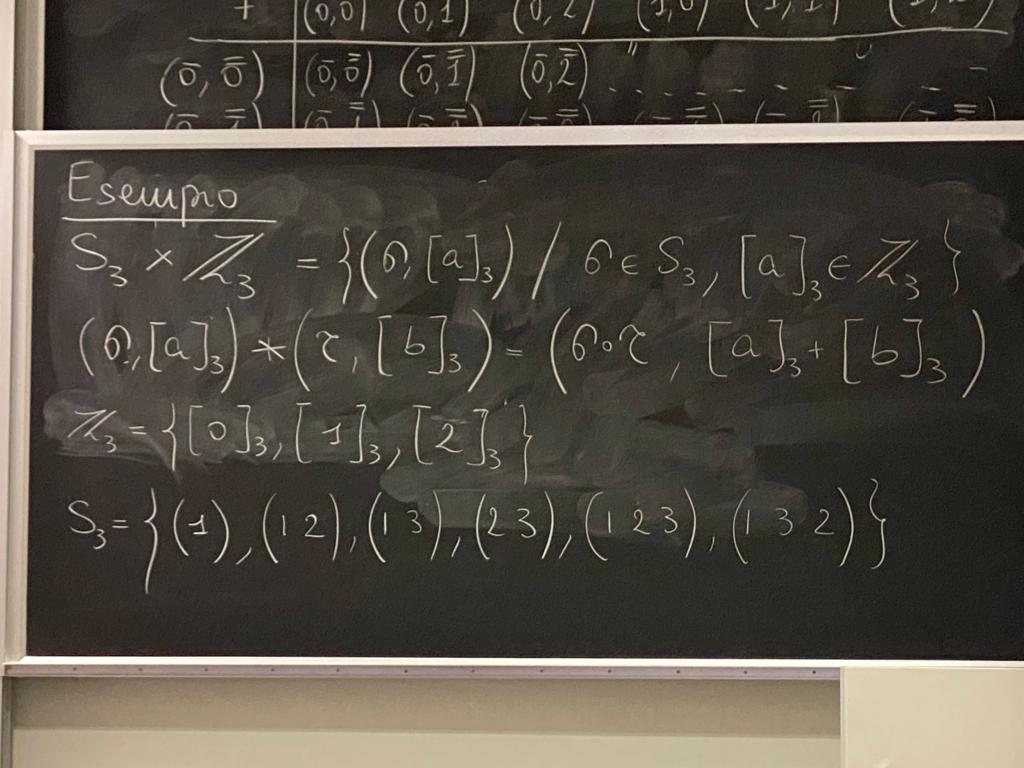 + (0,0) (0,1) (0,2) (1,0) (1,1)
(0̄, 0̿) (0̄, 0̿) (0̄, 1̿) (0̄, 2̿)
Esempio
S₃ × ℤ₃ = {(σ, [a]₃) / σ ∈ S₃, [a]₃ ∈ ℤ₃}
(σ, [a]₃) * (τ, [b]₃) = (σ∘τ, [a]₃ + [b]₃)
ℤ₃ = {[0]₃, [1]₃, [2]₃}
S₃ = {(1), (1 2), (1 3), (2 3), (1 2 3), (1 3 2)}